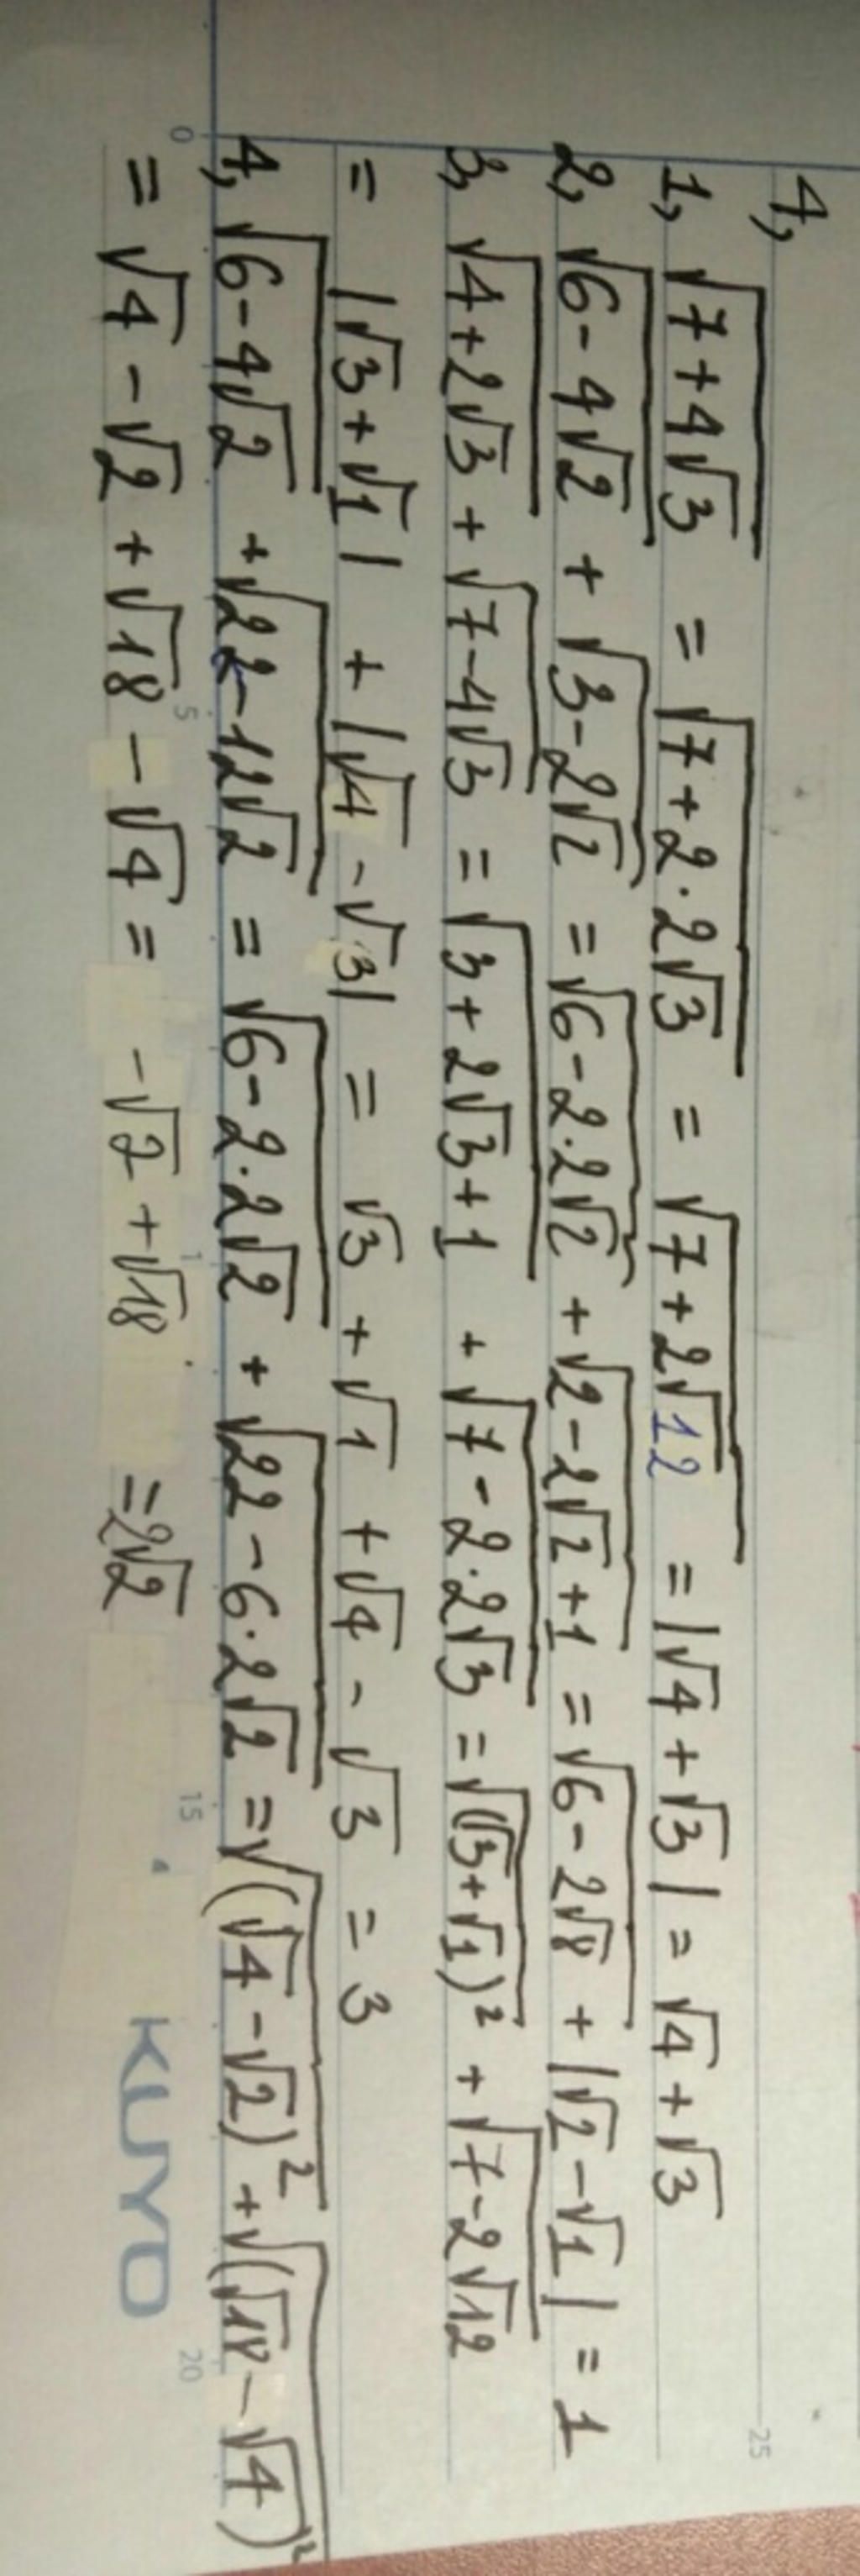 4,
1, √(7+4√3) = √(7+2·2√3) = √(7+2√12) = |√4+√3| = √4+√3
2, √(6-4√2) + √(3-2√2) = √(6-2·2√2) + √(2-2√2+1) = √(6-2√8) + |√2-√1| = 1
3, √(4+2√3) + √(7-4√3) = √(3+2√3+1) + √(7-2·2√3) = √((√3+√1)²) + √(7-2√12)
= |√3+√1| + |√4-√3| = √3+√1+√4-√3 = 3
4, √(6-4√2) + √(22-12√2) = √(6-2·2√2) + √(22-6·2√2) = √((√4-√2)²) + √((√18-√4)²)
= √4-√2+√18-√4 = -√2+√18 = 2√2
0 5 1 15 20 25
KUYO